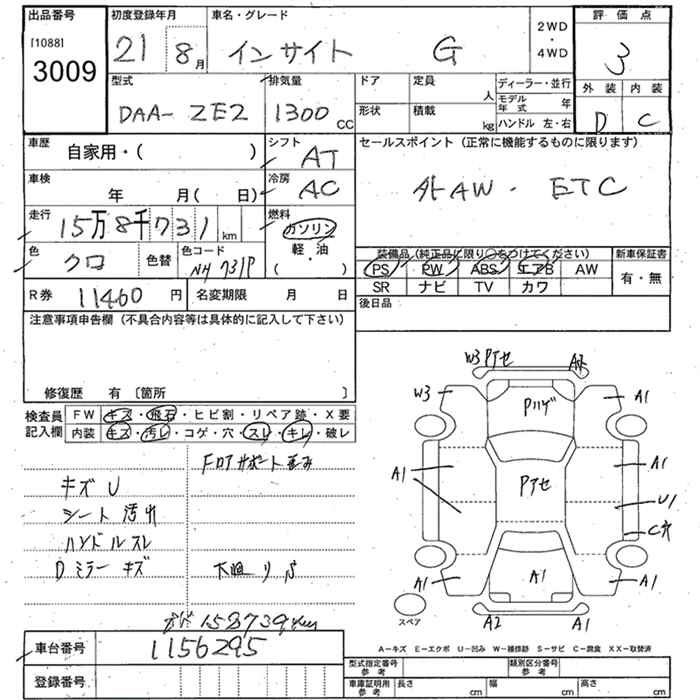 出品番号 初度登録年月 車名・グレード 2WD・4WD 評価点
[1088]
3009 21 8月 インサイト G 3
型式 排気量 ドア 定員 人 ディーラー・並行 外装 内装
DAA- ZE2 1300 CC 形状 積載 kg モデル年式 年 D C
ハンドル 左・右
車歴 自家用・( ) シフト AT セールスポイント (正常に機能するものに限ります)
車検 年 月( 日) 冷房 AC 社外AW . ETC
走行 15万8千731 km 燃料 ガソリン
軽・油
( )
色 クロ 色替 色コード NH731P
装備品 (純正品に限り○をつけてください) 新車保証書
PS PW ABS エアB AW 有・無
SR ナビ TV カワ
R券 11460 円 名変期限 月 日 後日品
注意事項申告欄 (不具合内容等は具体的に記入して下さい)
修復歴 有 〔箇所 〕
検査員記入欄 FW キズ・飛石・ヒビ割・リペア跡・X要
内装 キズ・汚レ・コゲ・穴・スレ・キレ・破レ
キズU
シート汚れ
ハンドルスレ
Dミラーキズ
W3 Pアセ
W3 A1
A1 Pアセ A1
U1
C穴
A1 A1 A1
A2 A1
スペア
158739km
車台番号 1156295
A-キズ E-エクボ U-凹み W-補修跡 S-サビ C-腐食 XX-取替済
登録番号
型式指定番号 参考 類別区分番号 参考
車庫証明用 参考 長さ cm 幅 cm 高さ cm